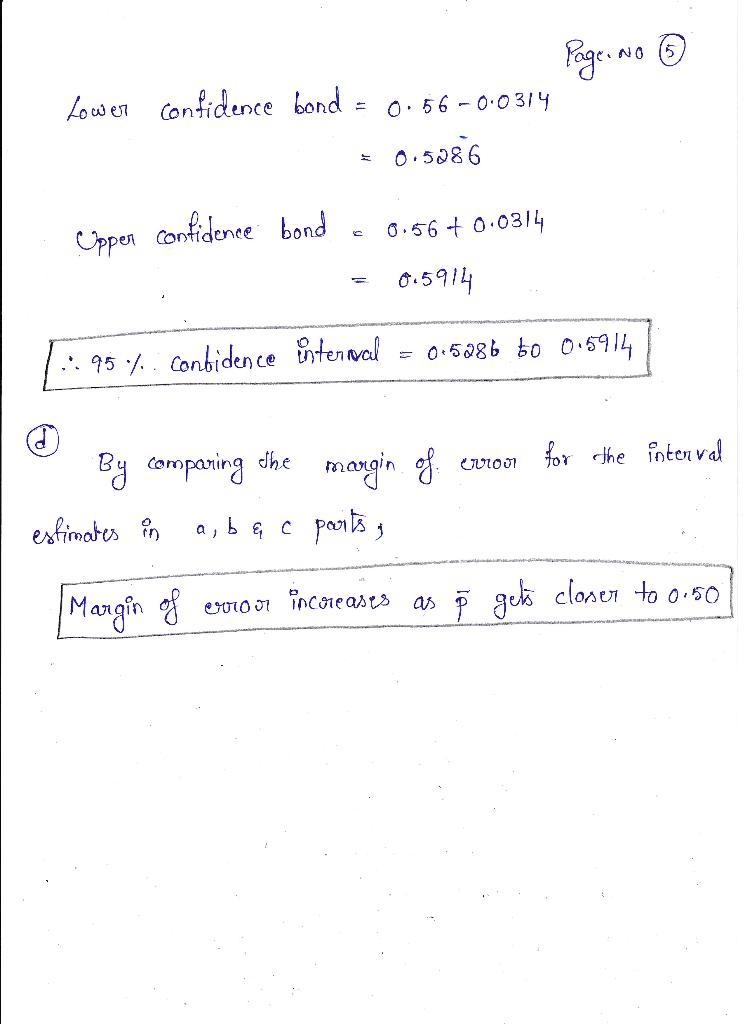 Page. NO 5
Lower confidence bond = 0.56 - 0.0314
= 0.5286
Upper confidence bond = 0.56 + 0.0314
= 0.5914
∴ 95 %. confidence interval = 0.5286 to 0.5914
d
By comparing the margin of error for the interval
estimates in a, b & c parts,
Margin of error increases as p̄ gets closer to 0.50